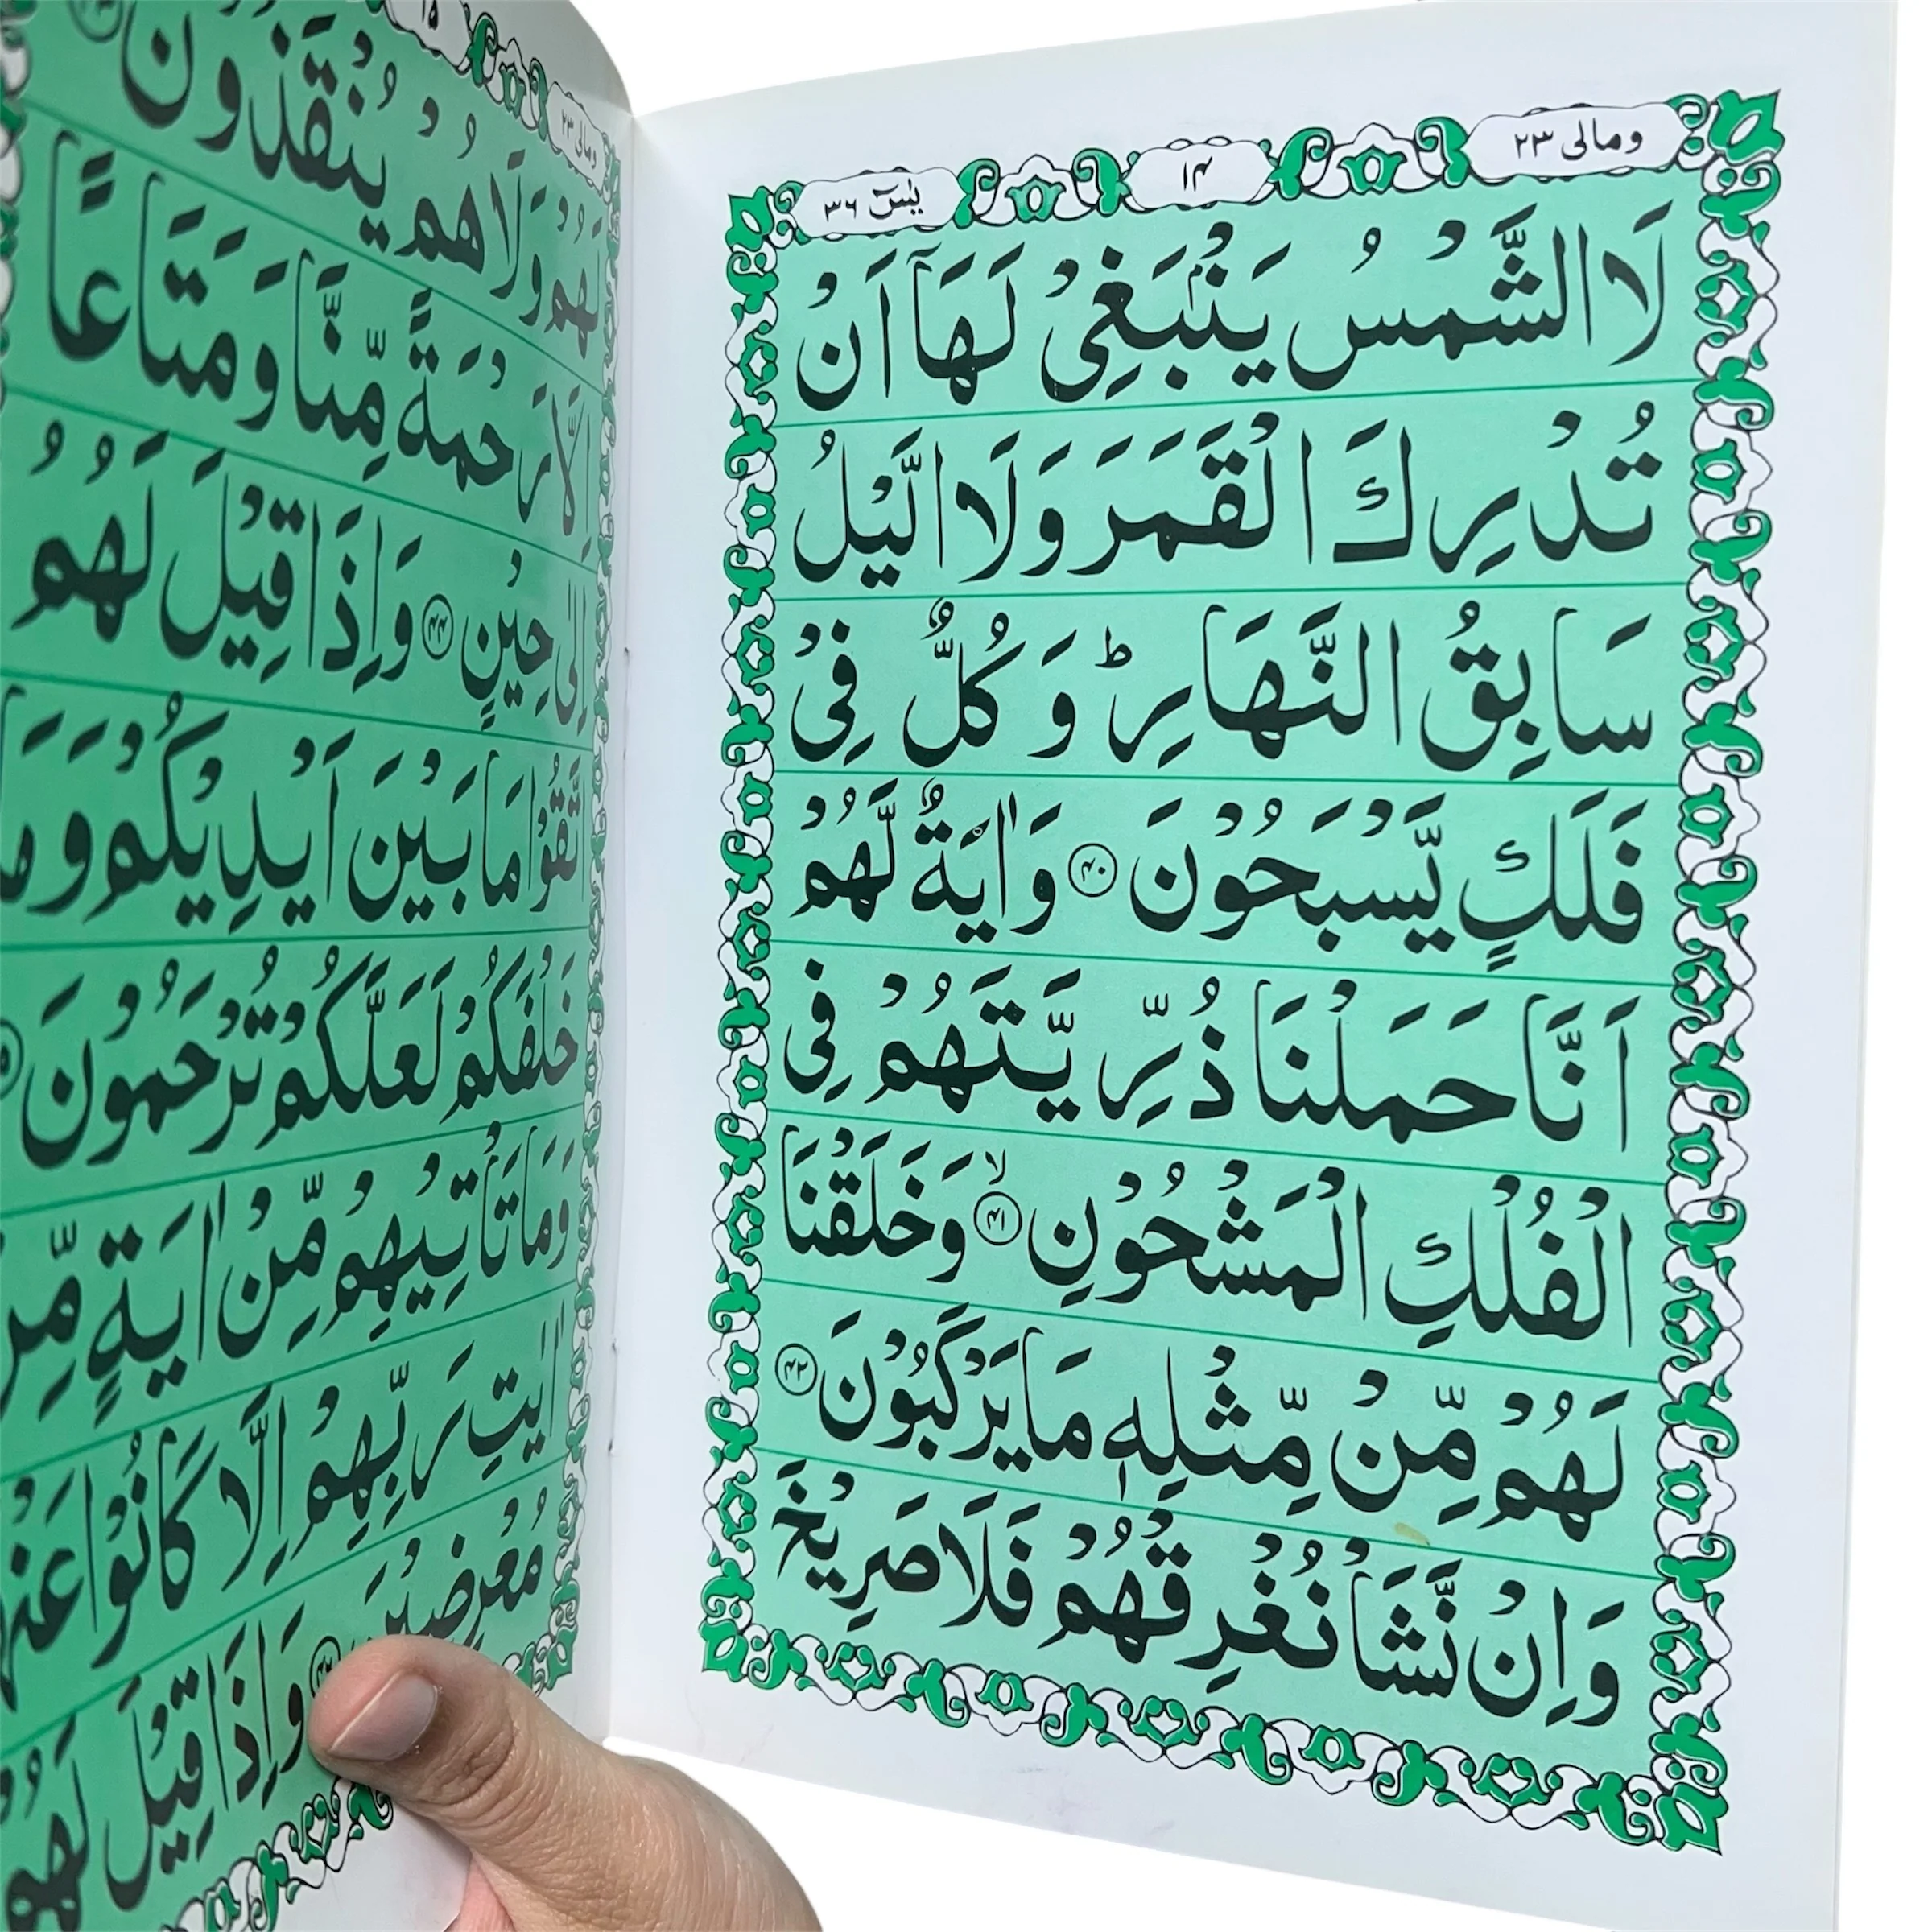 ومالی ۲۳
۱۴
یٰسٓ ۳۶
لَا الشَّمْسُ یَنْۢبَغِیْ لَهَاۤ اَنْ
تُدْرِكَ الْقَمَرَ وَلَا الَّیْلُ
سَابِقُ النَّهَارِ ؕ وَ كُلٌّ فِیْ
فَلَكٍ یَّسْبَحُوْنَ ۴۰ وَ اٰیَةٌ لَّهُمْ
اَنَّا حَمَلْنَا ذُرِّیَّتَهُمْ فِی
الْفُلْكِ الْمَشْحُوْنِ ۙ ۴۱ وَ خَلَقْنَا
لَهُمْ مِّنْ مِّثْلِهٖ مَا یَرْكَبُوْنَ ۴۲
وَ اِنْ نَّشَاْ نُغْرِقْهُمْ فَلَا صَرِیْخَ
ومالی ۲۳
۱۵
لَهُمْ وَلَا هُمْ یُنْقَذُوْنَ
اِلَّا رَحْمَةً مِّنَّا وَ مَتَاعًا
اِلٰی حِیْنٍ ۴۴ وَ اِذَا قِیْلَ لَهُمُ
اتَّقُوْا مَا بَیْنَ اَیْدِیْكُمْ وَ مَا
خَلْفَكُمْ لَعَلَّكُمْ تُرْحَمُوْنَ
وَ مَا تَاْتِیْهِمْ مِّنْ اٰیَةٍ مِّنْ
اٰیٰتِ رَبِّهِمْ اِلَّا كَانُوْا عَنْهَا
مُعْرِضِیْنَ وَ اِذَا قِیْلَ لَهُمْ